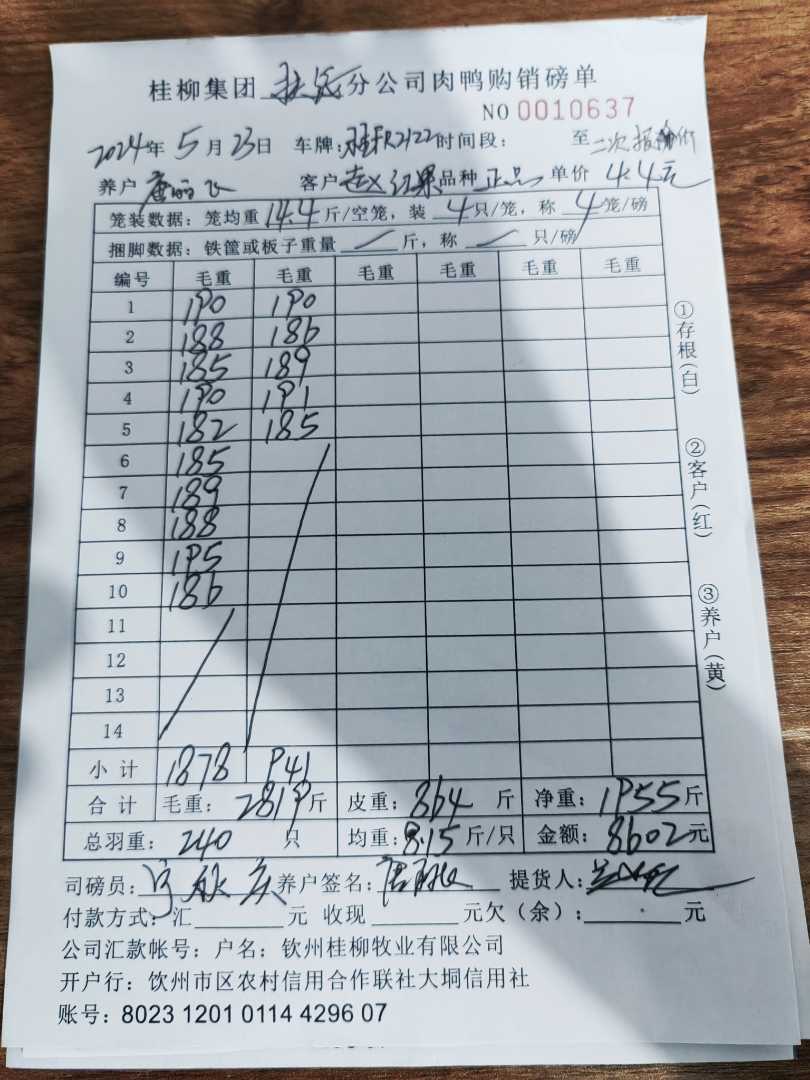 桂柳集团 分公司肉鸭购销磅单
NO 0010637
2024年 5月 23日 车牌: R2122 时间段: 至 二次报价
养户 唐丽飞 客户 红果 品种 正品 单价 4.4元
笼装数据: 笼均重 14.4 斤/空笼, 装 4 只/笼, 称 4 笼/磅
捆脚数据: 铁筐或板子重量 / 斤, 称 / 只/磅
编号 毛重 毛重 毛重 毛重 毛重 毛重
1 190 190
2 188 186
3 185 189
4 190 191
5 182 185
6 185
7 189
8 188
9 195
10 186
11
12
13
14
小计 1878 941
合计 毛重: 2819斤 皮重: 864 斤 净重: 1955斤
总羽重: 240 只 均重: 8.15斤/只 金额: 8602元
司磅员: 养户签名: 提货人:
付款方式: 汇 元 收现 元欠(余): 元
公司汇款帐号: 户名: 钦州桂柳牧业有限公司
开户行: 饮州市区农村信用合作联社大垌信用社
账号: 8023 1201 0114 4296 07
①存根(白)
②客户(红)
③养户(黄)